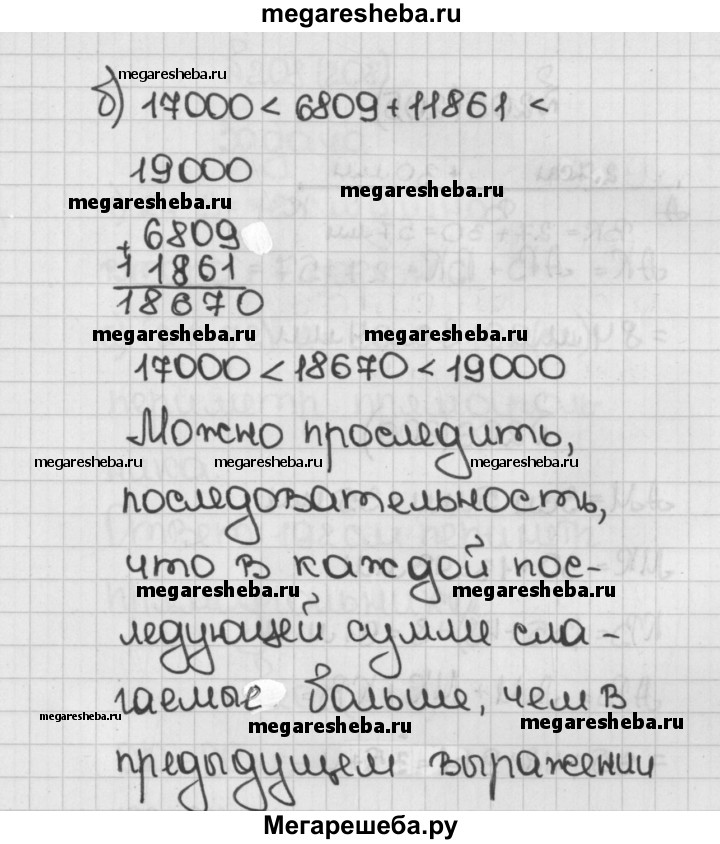 megaresheba.ru
megaresheba.ru
б) 17000 < 6809 + 11861 <
19000
megaresheba.ru megaresheba.ru
+ 6809
11861
18670
megaresheba.ru megaresheba.ru
17000 < 18670 < 19000
Можно проследить,
megaresheba.ru megaresheba.ru megaresheba.ru
последовательность,
что в каждой пос-
megaresheba.ru megaresheba.ru
ледующей сумме сла-
гаемые больше, чем в
megaresheba.ru megaresheba.ru megaresheba.ru
предыдущем выражении
Мегарешеба.ру